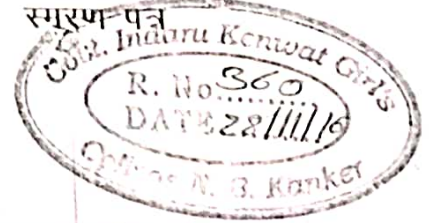 स्मरण-पत्र
Govt. Indaru Kenwat Girl's
R. No. 360
DATE 28/11/16
College N. B. Kanker